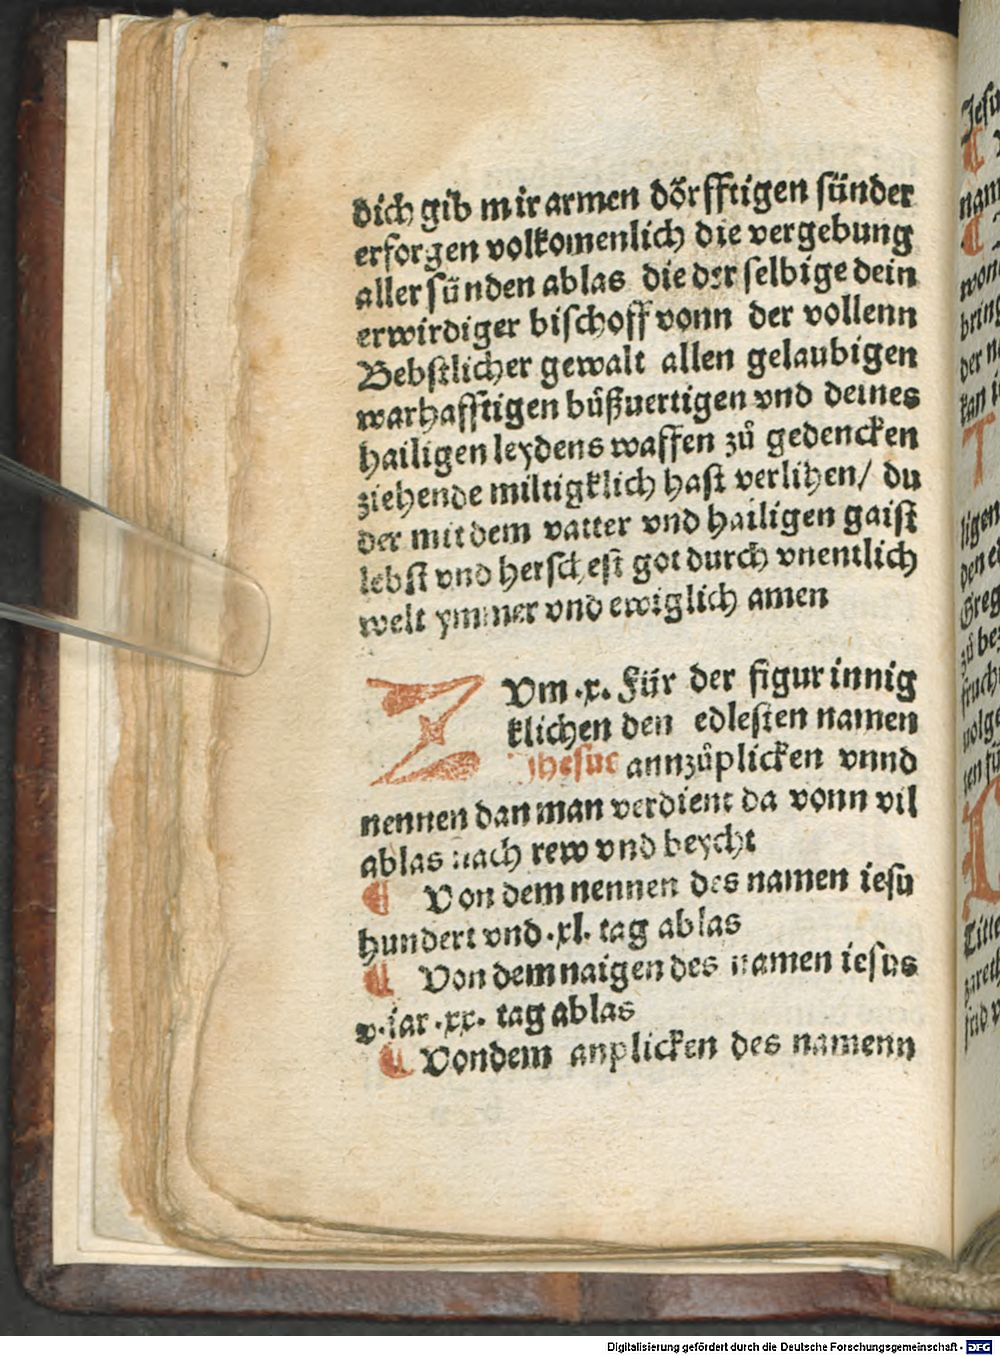 dich gib mir armen dörfftigen sünder
erforgen volkomenlich die vergebung
aller sünden ablas die der selbige dein
erwirdiger bischoff vonn der vollenn
Bebstlicher gewalt allen gelaubigen
warhafftigen büßuertigen vnd deines
hailigen leydens waffen zů gedencken
ziehende miltigklich hast verlihen/ du
der mit dem vatter vnd hailigen gaist
lebst vnd herschest got durch vnentlich
welt ymmer vnd ewiglich amen
ZVm .x. Für der figur innig
klichen den edlesten namen
Jhesus annzůplicken vnnd
nennen dan man verdient da vonn vil
ablas nach rew vnd beycht
¶ Von dem nennen des namen iesu
hundert vnd .xl. tag ablas
¶ Von dem naigen des namen iesus
v. iar .xx. tag ablas
¶ Von dem anplicken des namenn
Jesu
nam
won
bring
der n
kan i
T
ligen
den e
Greg
zů be
frucht
volge
ten fü
Titte
zareth
sind v
Digitalisierung gefördert durch die Deutsche Forschungsgemeinschaft - DFG